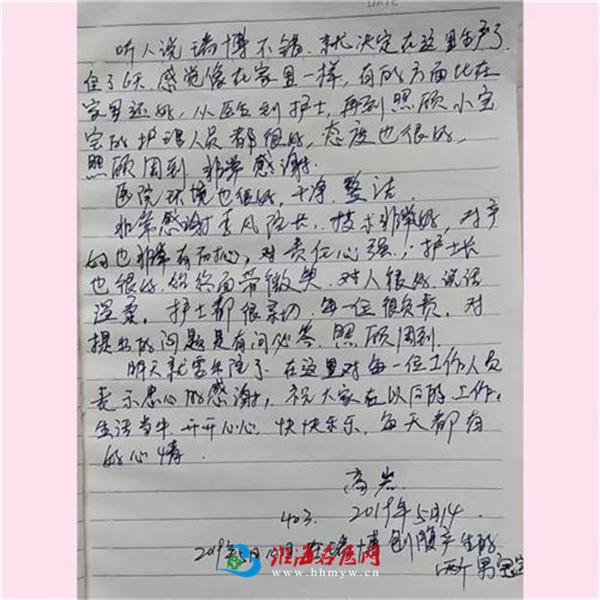 听人说瑞博不错.就决定在这里生产了.
住了6天.感觉像在家里一样,有的方面比在
家里还好,从医生到护士,再到照顾小宝
宝的护理人员都很好,态度也很好,
照顾周到.非常感谢.
医院环境也很好,干净.整洁.
非常感谢季凤院长.技术非常好,对产
妇也非常有耐心,对责任心强,;护士长
也很好.始终面带微笑.对人很好.说话
温柔.护士都很亲切.每一位很负责.对
提出的问题是有问必答.照顾周到.
明天就要出院了.在这里对每一位工作人员
表示忠心的感谢,祝大家在以后的工作,
生活当中.开开心心.快快乐乐.每天都有
好心情.
高岩.
403. 2019年5月14
2019年5月10日在瑞博剖腹产生的
两个男宝宝
淮海名医网
www.hhmyw.cn
DATE